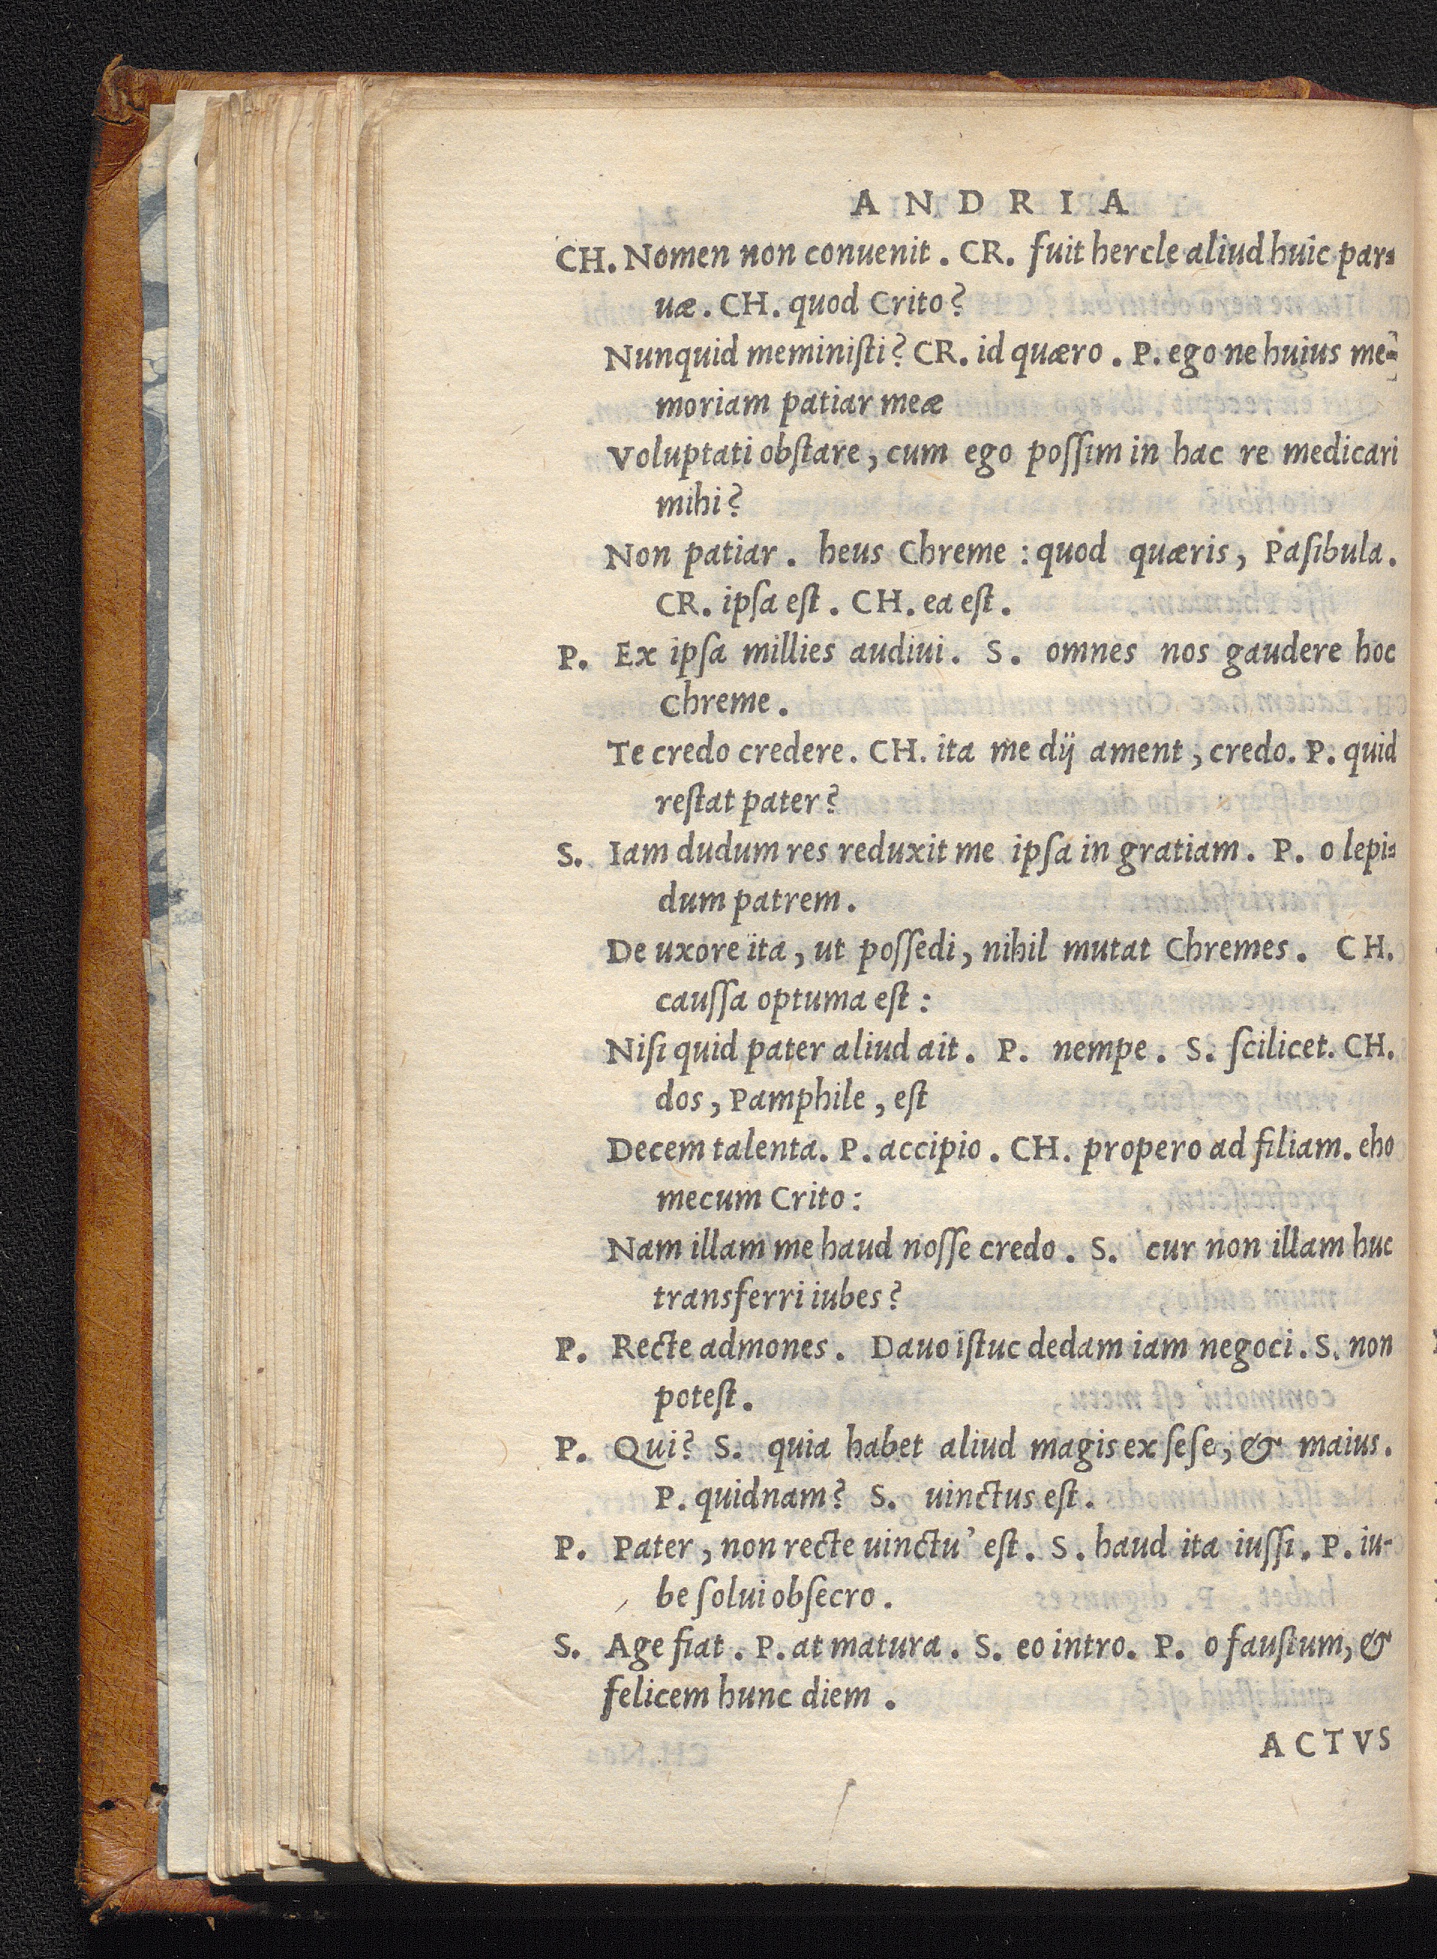 ANDRIA
CH. Nomen non conuenit. CR. fuit hercle aliud huic par-
uæ. CH. quod Crito?
Nunquid meministi? CR. id quæro. P. ego ne huius me-
moriam patiar meæ
Voluptati obstare, cum ego possim in hac re medicari
mihi?
Non patiar. heus Chreme: quod quæris, Pasibula.
CR. ipsa est. CH. ea est.
P. Ex ipsa millies audiui. S. omnes nos gaudere hoc
Chreme.
Te credo credere. CH. ita me dij ament, credo. P. quid
restat pater?
S. Iam dudum res reduxit me ipsa in gratiam. P. o lepi-
dum patrem.
De uxore ita, ut possedi, nihil mutat Chremes. CH.
caussa optuma est:
Nisi quid pater aliud ait. P. nempe. S. scilicet. CH.
dos, Pamphile, est
Decem talenta. P. accipio. CH. propero ad filiam. eho
mecum Crito:
Nam illam me haud nosse credo. S. cur non illam huc
transferri iubes?
P. Recte admones. Dauo istuc dedam iam negoci. S. non
potest.
P. Qui? S. quia habet aliud magis ex sese, & maius.
P. quidnam? S. uinctus est.
P. Pater, non recte uinctu' est. S. haud ita iussi. P. iu-
be solui obsecro.
S. Age fiat. P. at matura. S. eo intro. P. o faustum, &
felicem hunc diem.
ACTVS